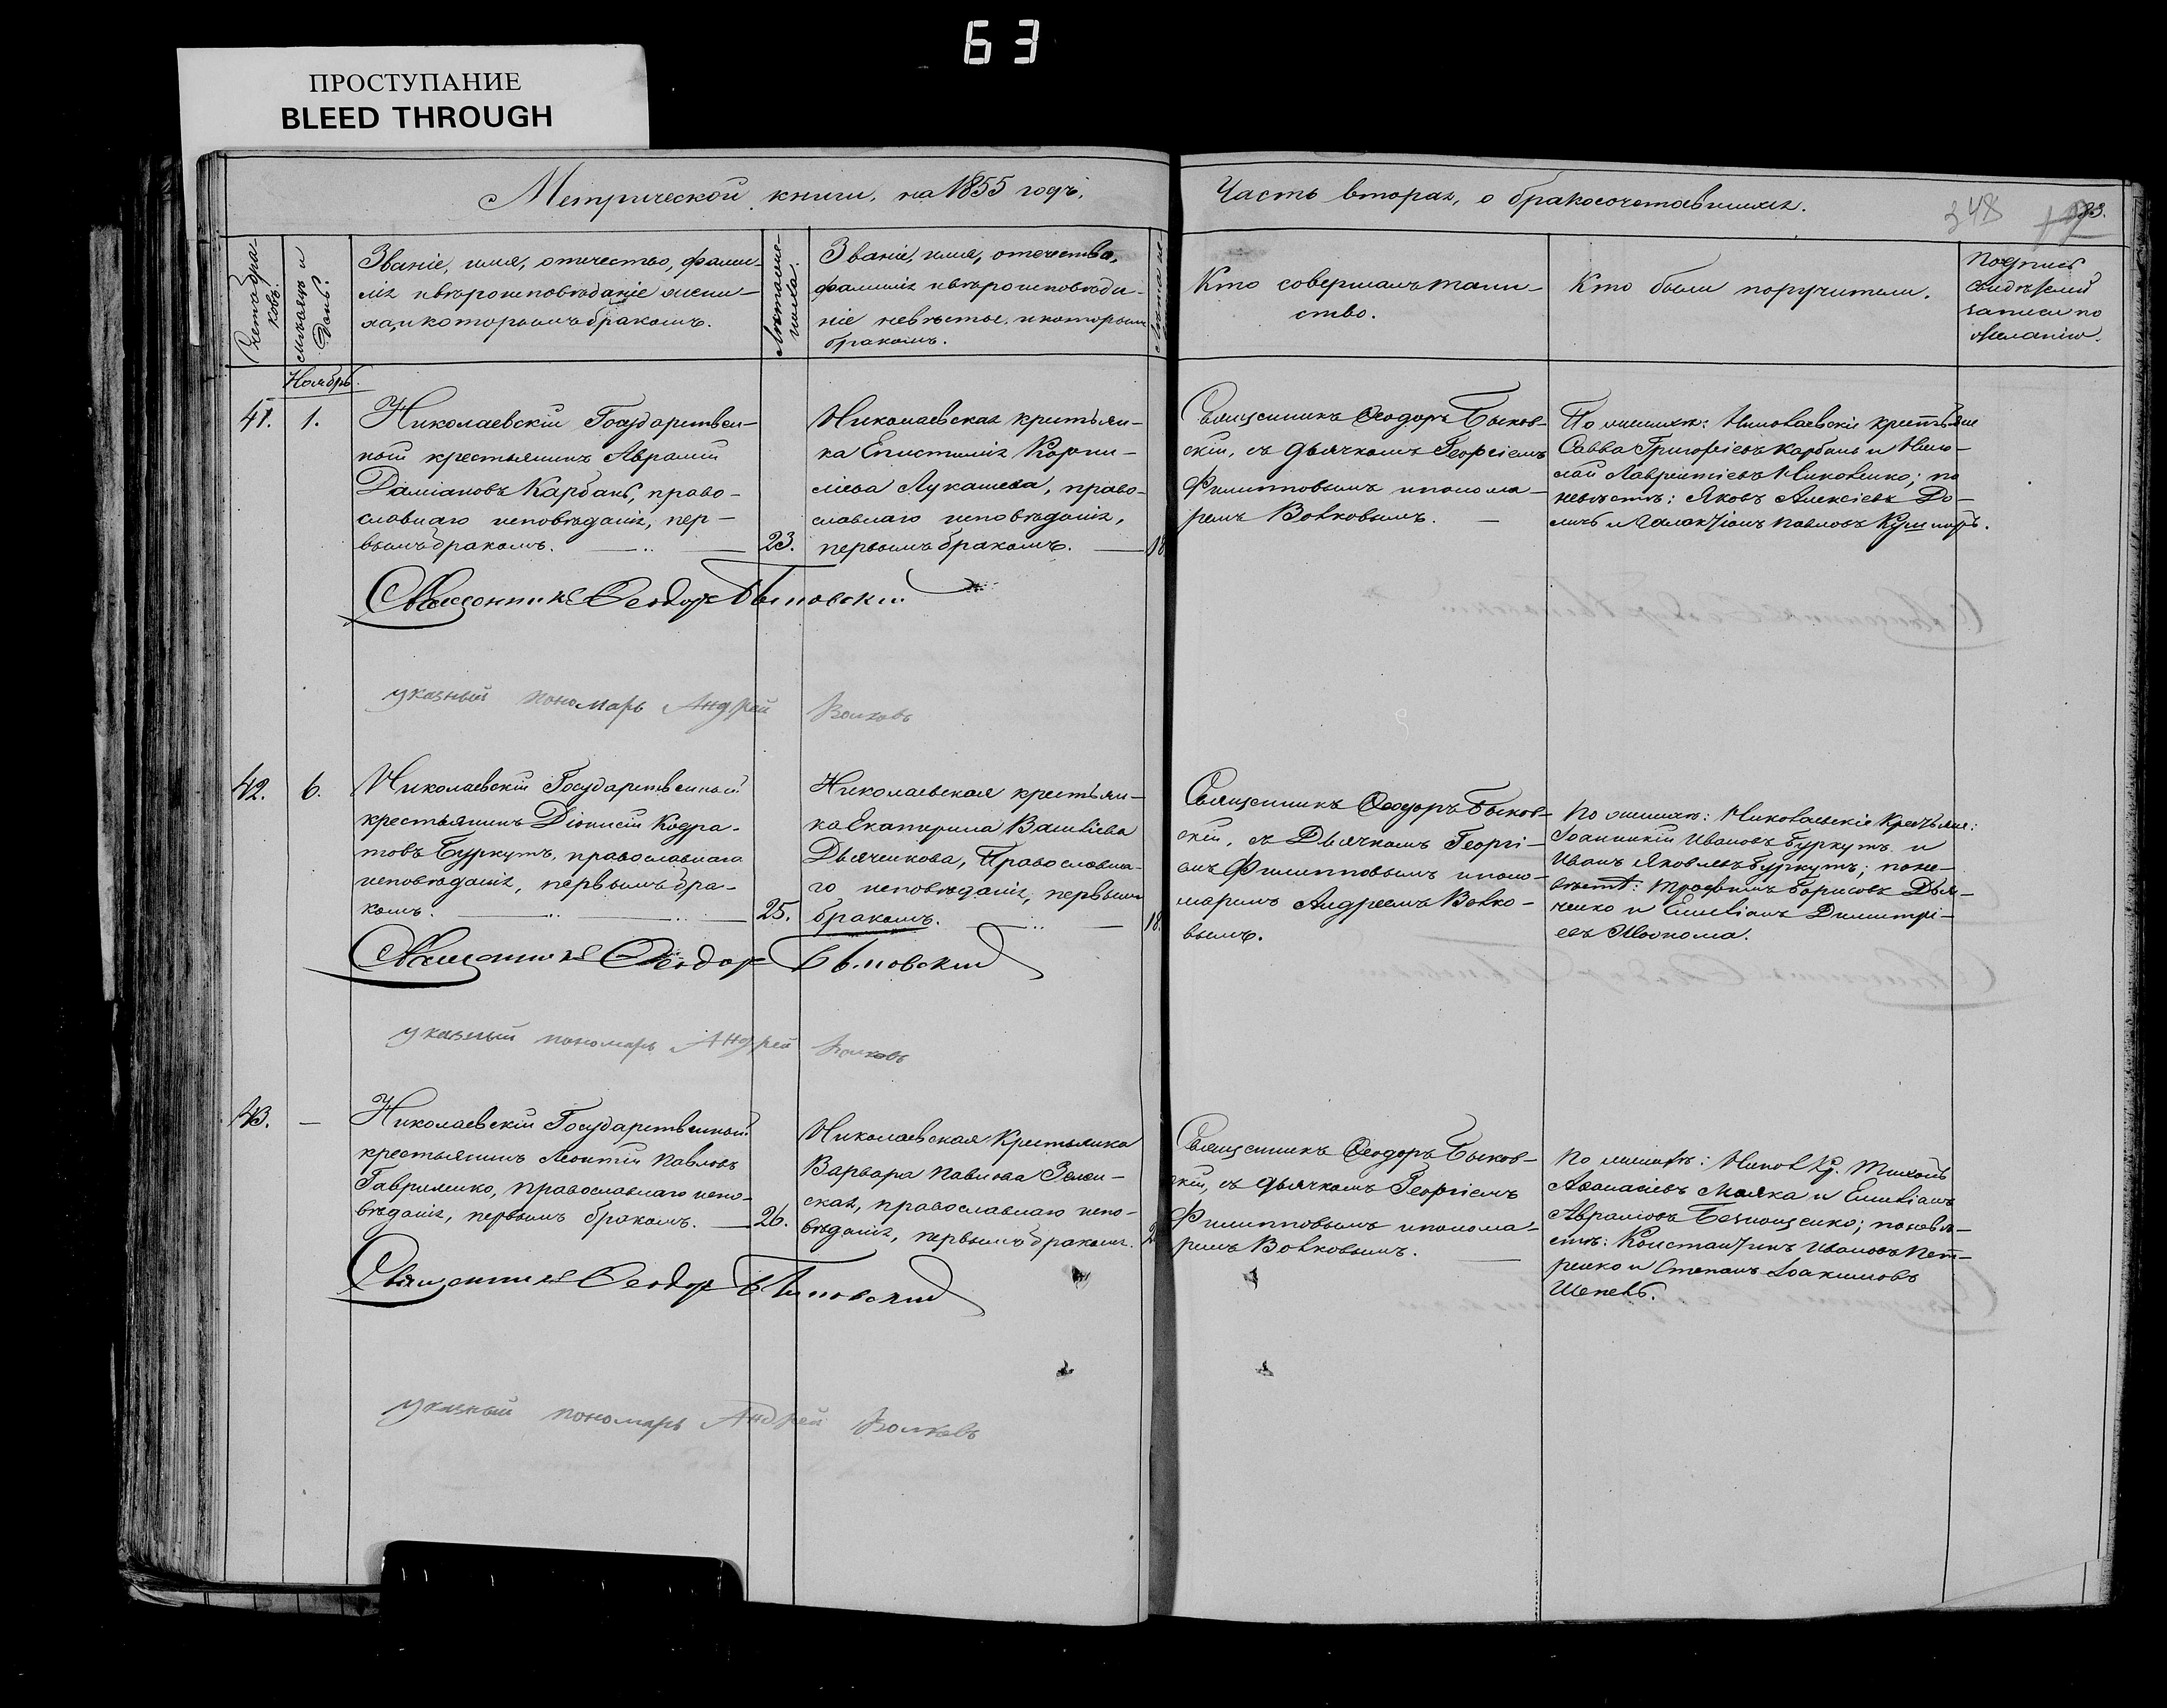 63
ПРОСТУПАНИЕ
BLEED THROUGH
Метрической книги, на 1855 годъ.
Часть вторая, о бракосочетавшихся.
348
Счетъ бра-
ковъ.
Мѣсяцъ и
День.
Званіе, имя, отечество, фами-
лія и вѣроисповѣданіе жени-
ха, и которымъ бракомъ.
Лѣта жени-
ха.
Званіе, имя, отечество,
фамилія и вѣроисповѣда-
ніе невѣсты, и которымъ
бракомъ.
Лѣта не-
Кто совершалъ таин-
ство.
Кто были поручители.
Подпись
свидѣтелей
записи по
желанію.
Ноябрь.
41.
1.
Николаевскій Государствен-
ный крестьянинъ Аврамій
Даміановъ Карбанъ, право-
славнаго исповѣданія, пер-
вымъ бракомъ.
23.
Николаевская крестьян-
ка Епистимія Корни-
ліева Лукашева, право-
славнаго исповѣданія,
первымъ бракомъ.
18
Священникъ Ѳеодоръ Быков-
скій, съ дьячкомъ Георгіемъ
Филипповымъ и понома-
ремъ Волковымъ.
По женихѣ: Николаевскіе крестьяне
Савва Григоріевъ Карбанъ и Нико-
лай Лаврентіевъ Николенко; по
невѣстѣ: Яковъ Алексіевъ До-
личъ и Галактіонъ Павловъ Кушнаръ.
Священникъ Ѳеодоръ Быковскій
указный пономарь Андрей Волковъ
42.
6.
Николаевскій Государственный
крестьянинъ Діонисій Кодра-
товъ Буркутъ, православнаго
исповѣданія, первымъ бра-
комъ.
25.
Николаевская крестьян-
ка Екатерина Василіева
Дьяченкова, Православна-
го исповѣданія, первымъ
бракомъ.
18.
Священникъ Ѳеодоръ Быков-
скій, съ Дьячкомъ Георгі-
емъ Филипповымъ и поно-
маремъ Андреемъ Волко-
вымъ.
По женихѣ: Николаевскіе Крестьяне:
Іоанникій Ивановъ Буркутъ и
Иванъ Яковлевъ Буркутъ; по не-
вѣстѣ: Трофимъ Борисовъ Дья-
ченко и Емиліанъ Димитрі-
евъ
Священникъ Ѳеодоръ Быковскій
указный пономарь Андрей Волковъ
43.
—
Николаевскій Государственный
крестьянинъ Леонтій Павловъ
Гавриленко, православнаго испо-
вѣданія, первымъ бракомъ.
26.
Николаевская Крестьянка
Варвара Павлова Зелен-
ская, православнаго испо-
вѣданія, первымъ бракомъ.
2
Священникъ Ѳеодоръ Быков-
скій, съ дьячкомъ Георгіемъ
Филипповымъ и понома-
ремъ Волковымъ.
По женихѣ: Никол. Кр. Тихонъ
Аѳанасіевъ Маяка и Емиліанъ
Аврамовъ Безнощенко; по невѣ-
стѣ: Константинъ Ивановъ Пет-
ренко и Степанъ Іоакимовъ
Шепель.
Священникъ Ѳеодоръ Быковскій
указный пономарь Андрей Волковъ